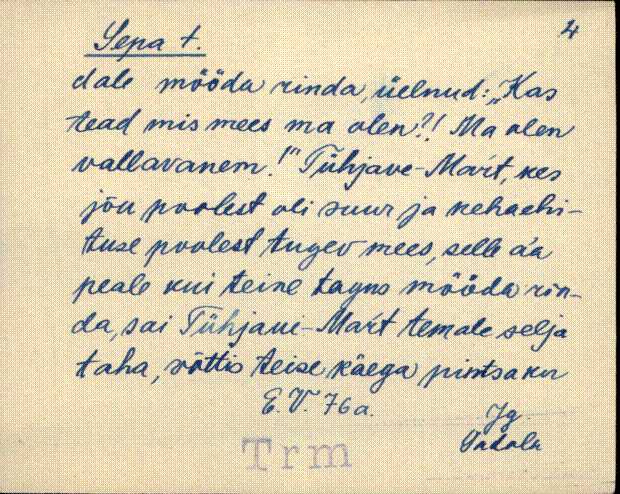 4
Sepa t.
dale mööda rinda, üelnud: „Kas
tead mis mees ma olen?! Ma olen
vallavanem!" Tühjave-Mart, kes
jõu poolest oli suur ja kehaehi-
tuse poolest tugev mees, selle
peale kui teine tagus mööda rin-
da, sai Tühjave-Mart temale selja
taha, võttis teise käega pintsaku
E. V. 76 a.
Jg.
Trm